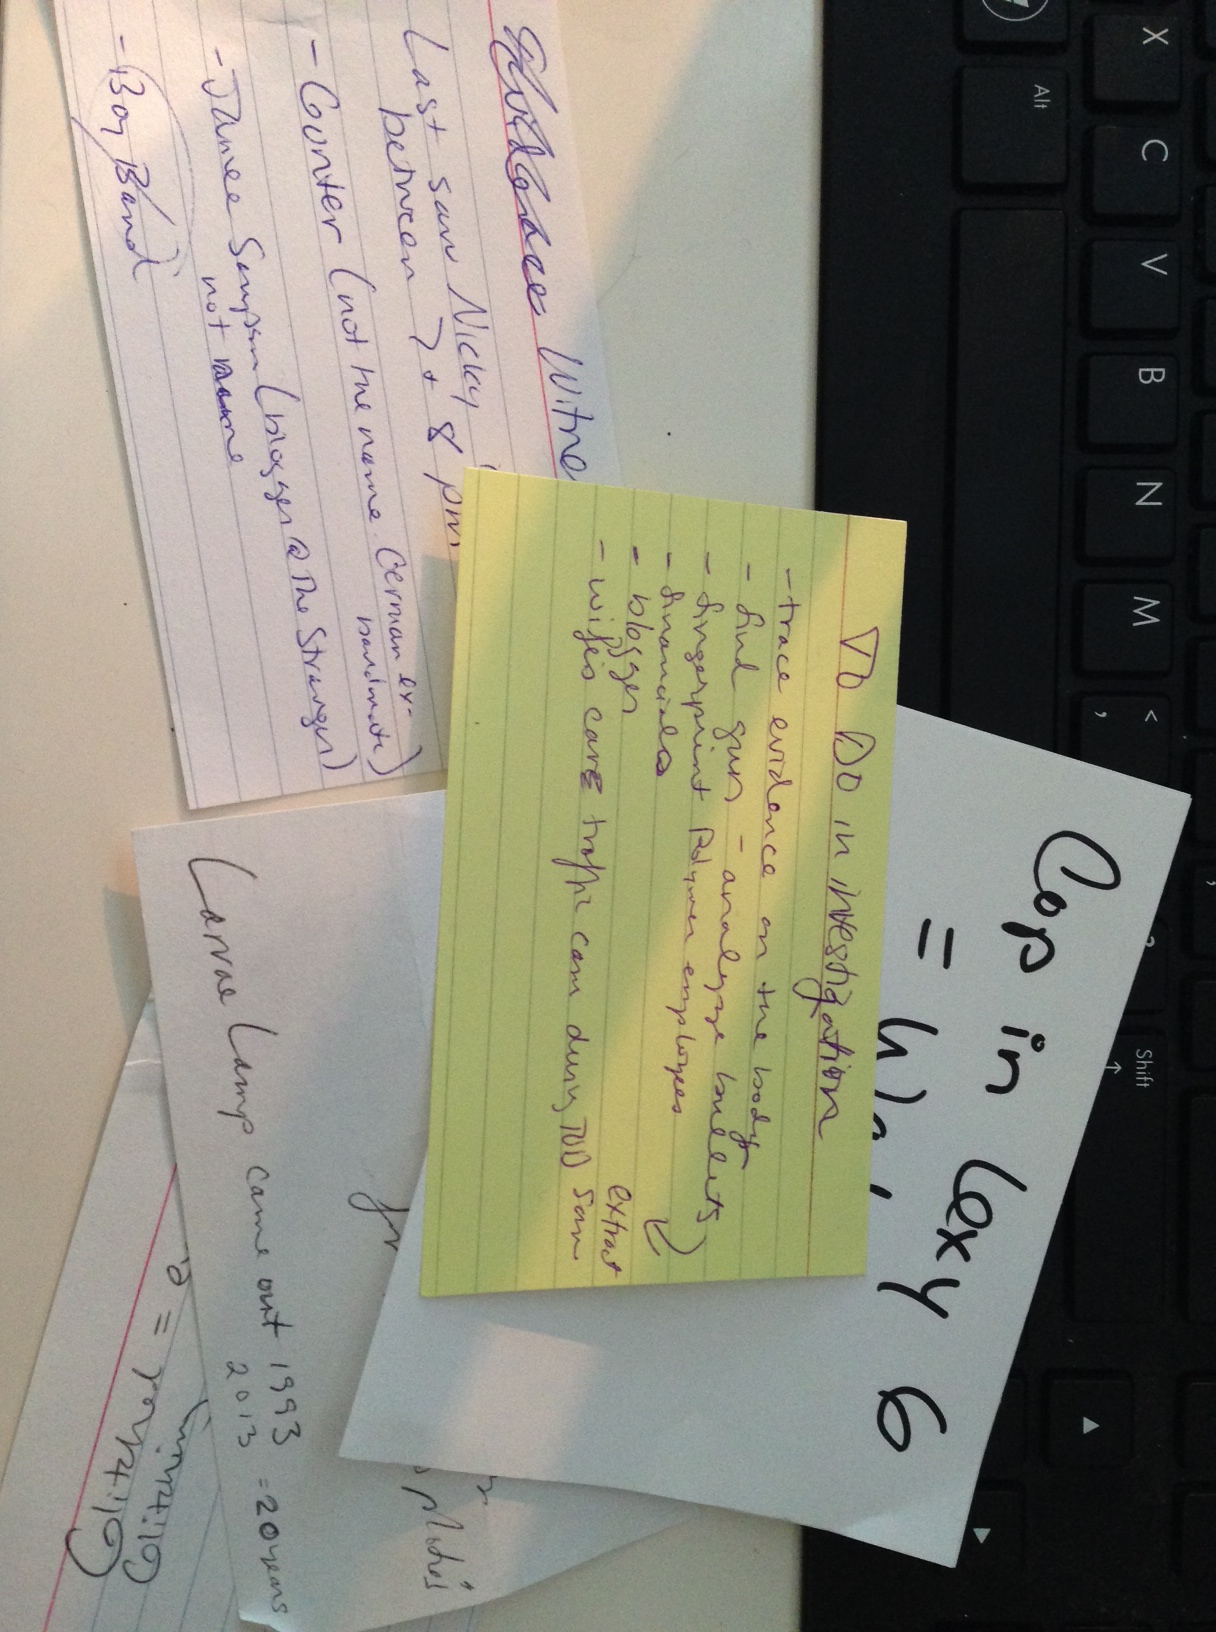 Witne
Last saw Nicky
between 7 + 8 pm
- Gunter (not the name. German ex-
bandmate)
- Jamee Sampson (blogger @ The Stranger)
not name
- Boy Band
To Do in investigation
- trace evidence on the body
- find gun - analyze bullets)
- fingerprint Polymer employees
- financials
- blogger
extract
- wife's care traffic cam during TOD san
Cop in Lexy 6
=
Larvae Lamp came out 1993
2013 = 20 years
Glitched = a
Glitching
X
C
V
B
N
M
<
,
Alt
Shift